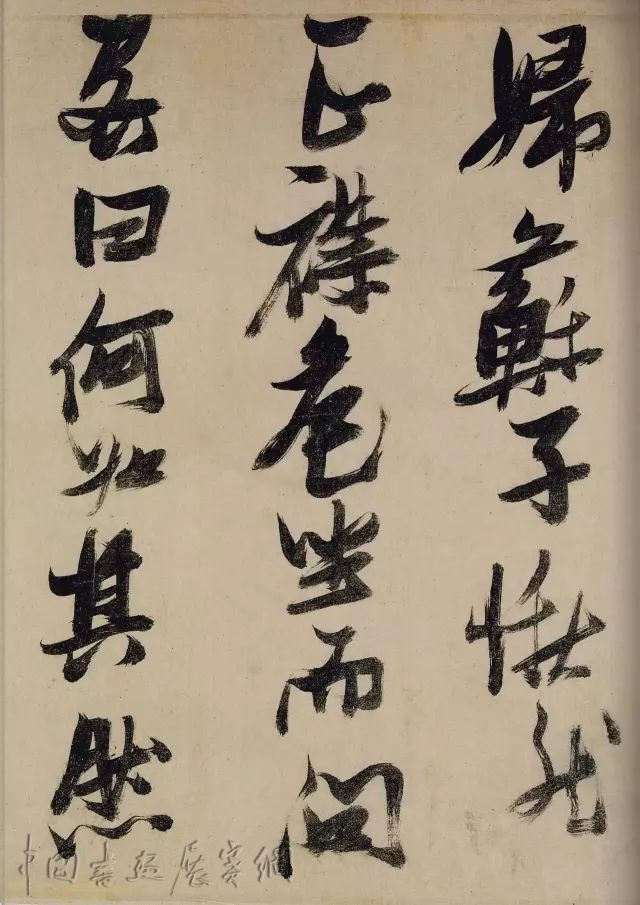 婦蘇子愀然
正襟危坐而問
客曰何為其然
中国書法展賽網